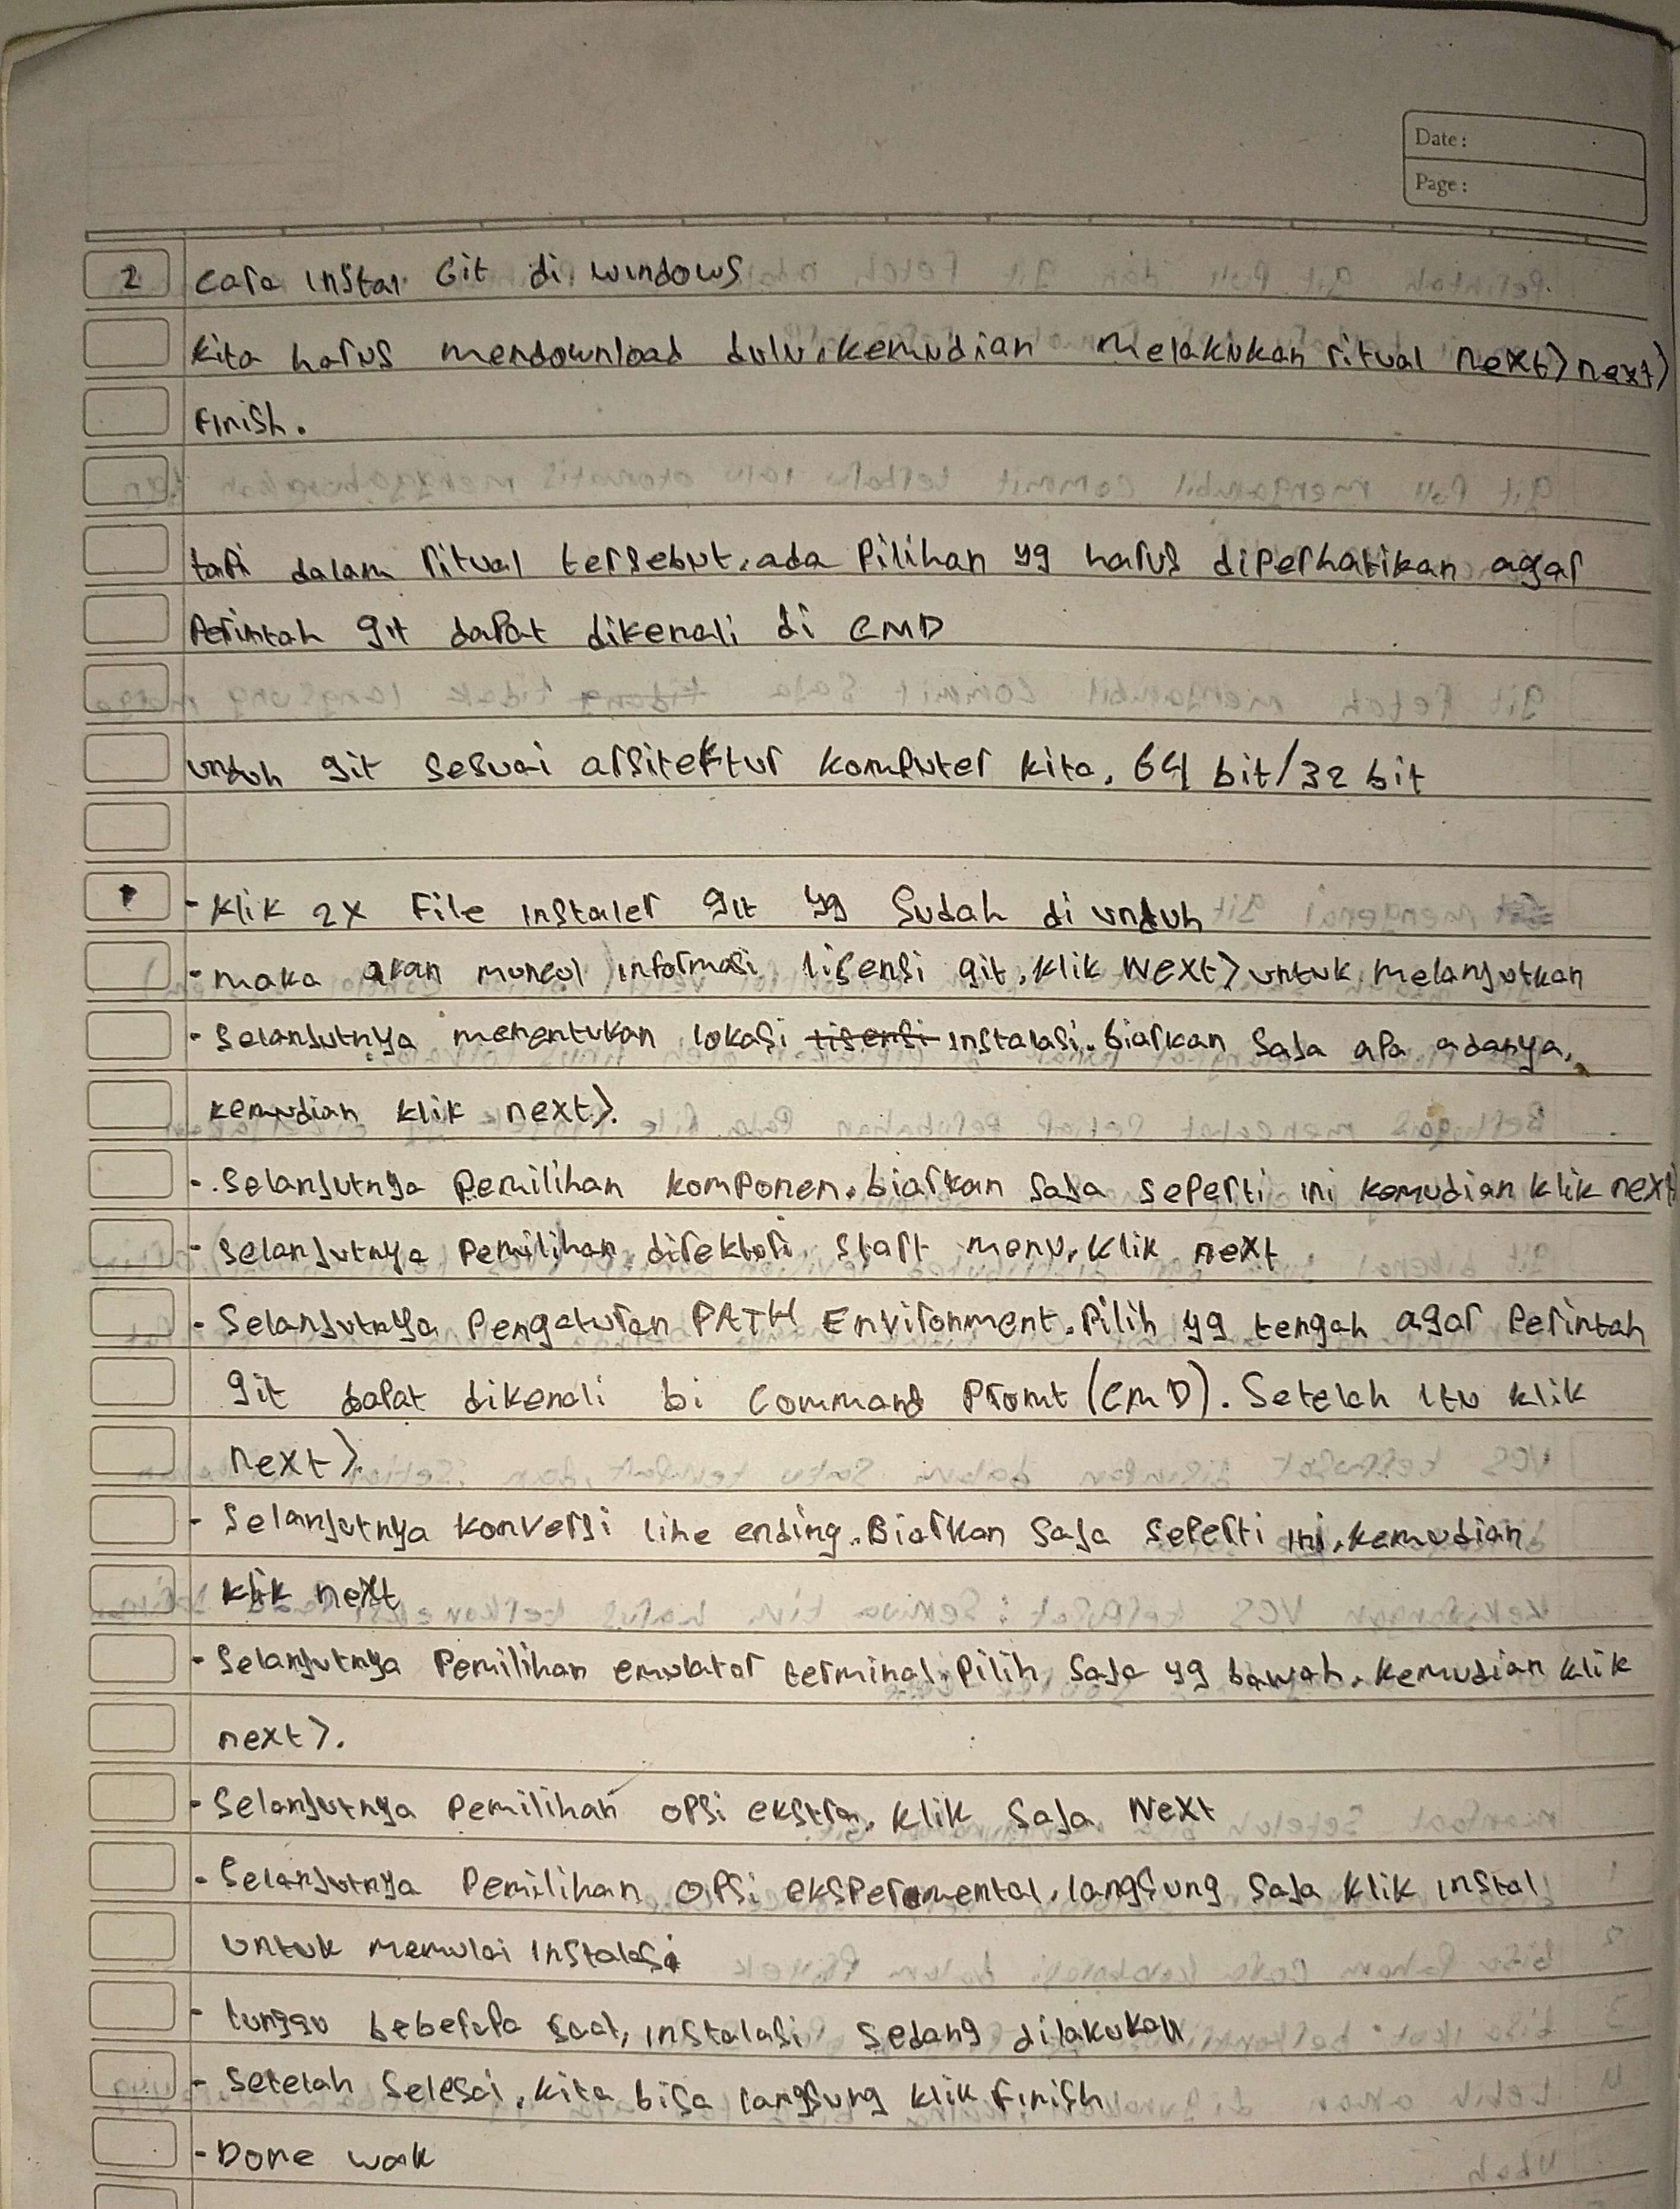 Date:
Page:
2 Cara instal Git di windows
kita harus mendownload dulu, kemudian melakukan ritual next> next>
Finish.
tapi dalam ritual tersebut, ada pilihan yg harus diperhatikan agar
perintah git dapat dikenali di CMD
unduh git sesuai arsitektur komputer kita, 64 bit/32 bit
- Klik 2x File instaler git yg Sudah di unduh
- maka akan muncul informasi lisensi git, klik Next> untuk melanjutkan
- Selanjutnya menentukan lokasi lisensi instalasi. biarkan saja apa adanya,
kemudian klik next>.
- Selanjutnya pemilihan komponen. biarkan saja seperti ini kemudian klik next
- Selanjutnya pemilihan direktori start menu, klik next
- Selanjutnya pengaturan PATH Environment. Pilih yg tengah agar perintah
git dapat dikenali di Command Promt (CMD). Setelah itu klik
next>
- Selanjutnya konversi line ending. Biarkan saja seperti ini, kemudian
klik next
- Selanjutnya pemilihan emulator terminal. pilih saja yg bawah, kemudian klik
next>.
- Selanjutnya pemilihan opsi ekstra, klik saja Next
- Selanjutnya pemilihan opsi eksperemental, langsung saja klik instal
untuk memulai instalasi
- tunggu beberapa saat, instalasi sedang dilakukan
- Setelah selesai, kita bisa langsung klik finish
- Done wak